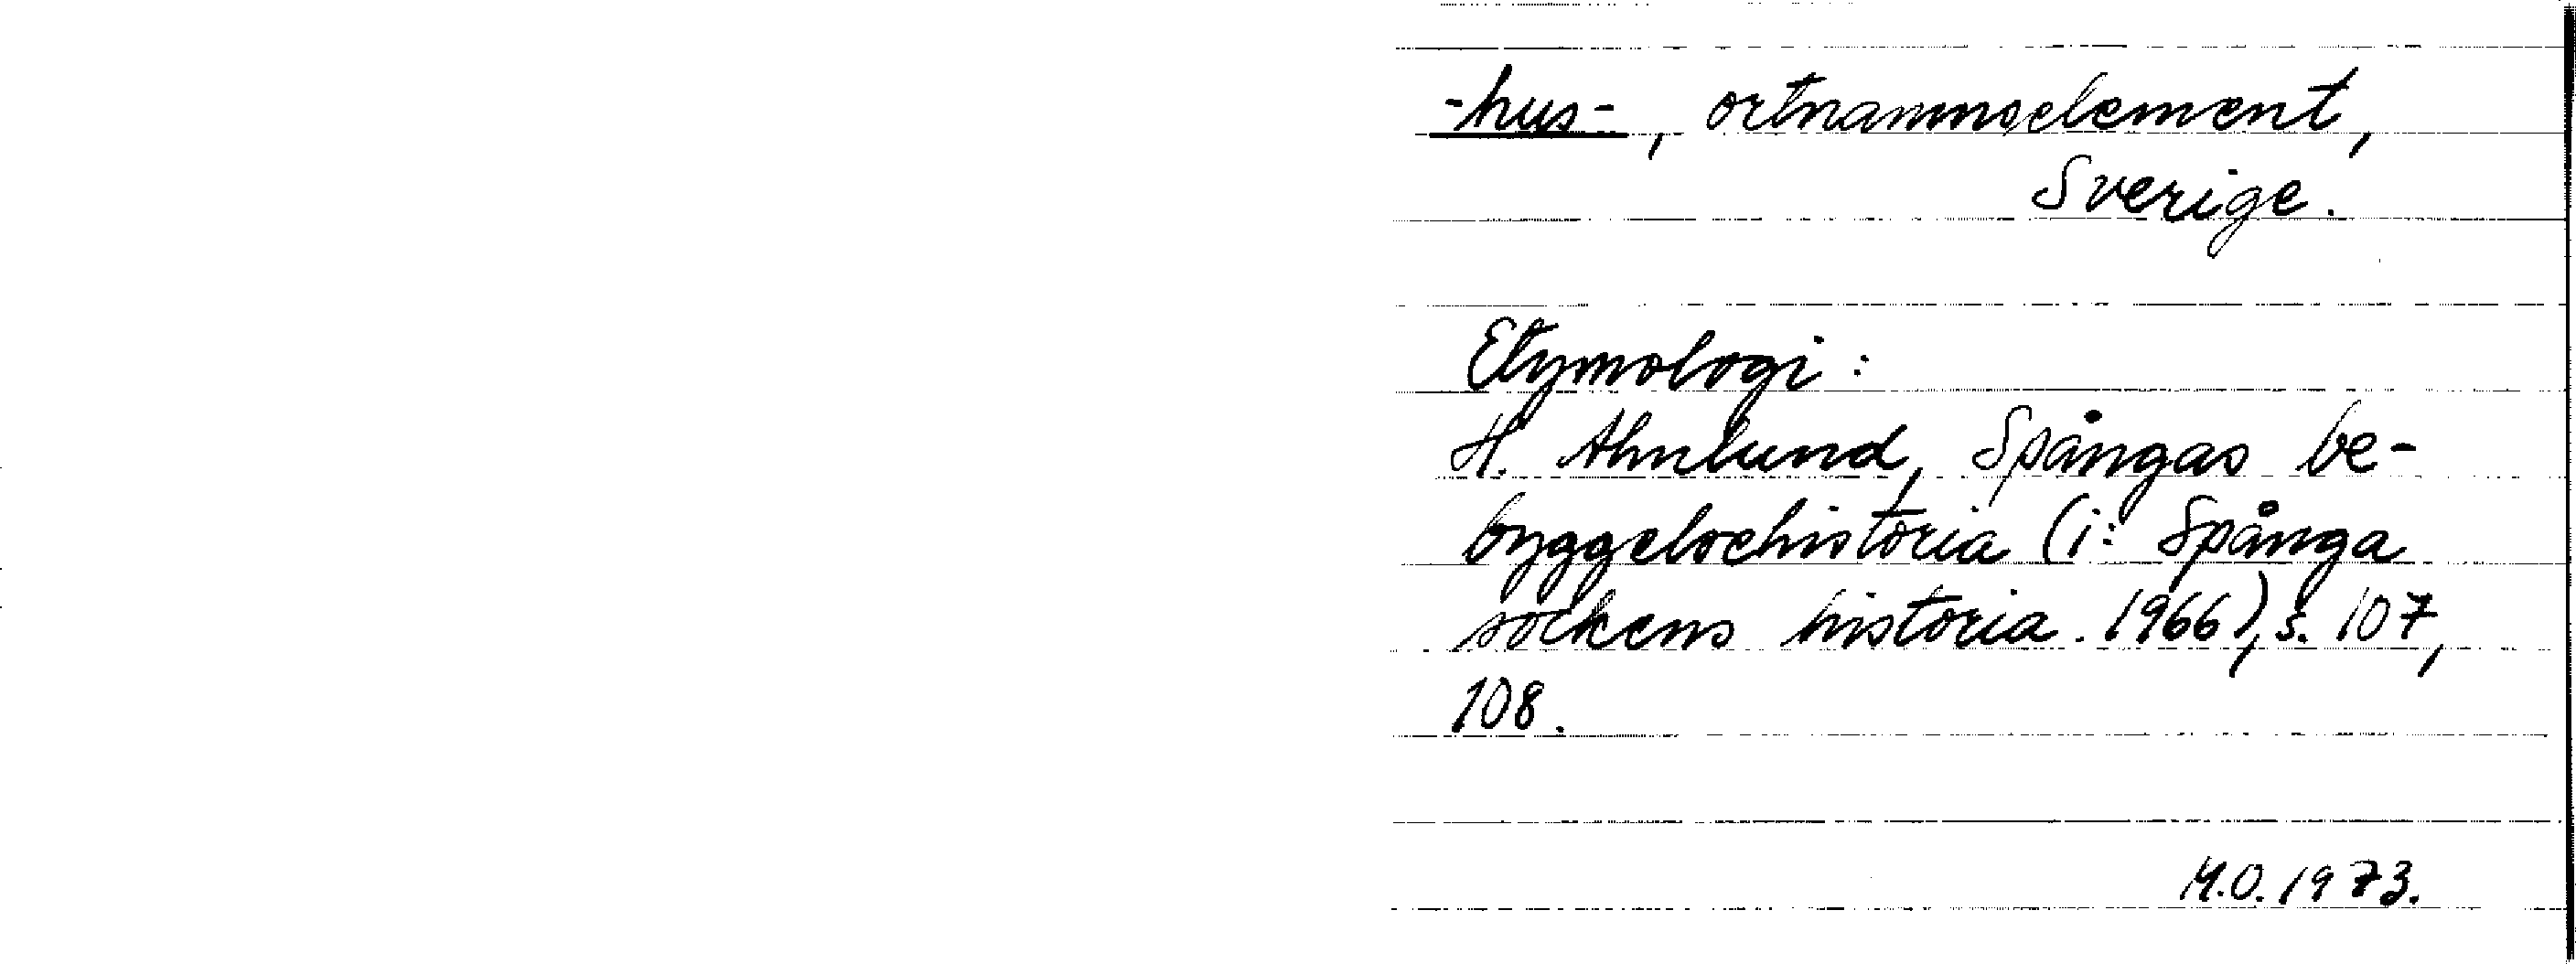 -hus-, ortnamnselement,
Sverige.
Etymologi:
H. Ahnlund, Spångas be-
byggelsehistoria (i: Spånga
sockens historia. 1966), s. 107,
108.
M.O. 1973.